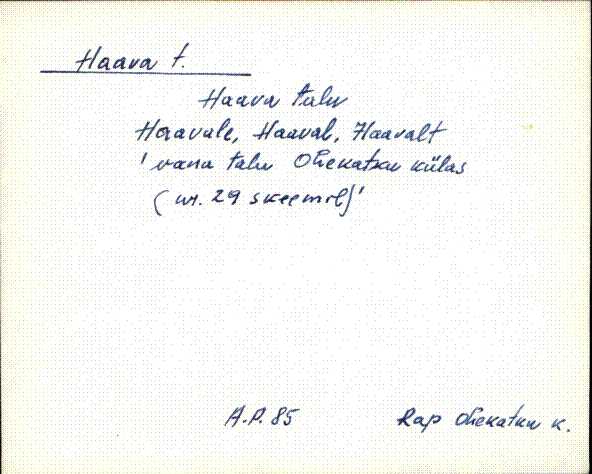 Haava t.
Haava talu
Haavale, Haaval, Haavalt
'vana talu Ohekatku külas
(nr. 29 skeemil)'
A.P. 85 Rap Ohekatku k.